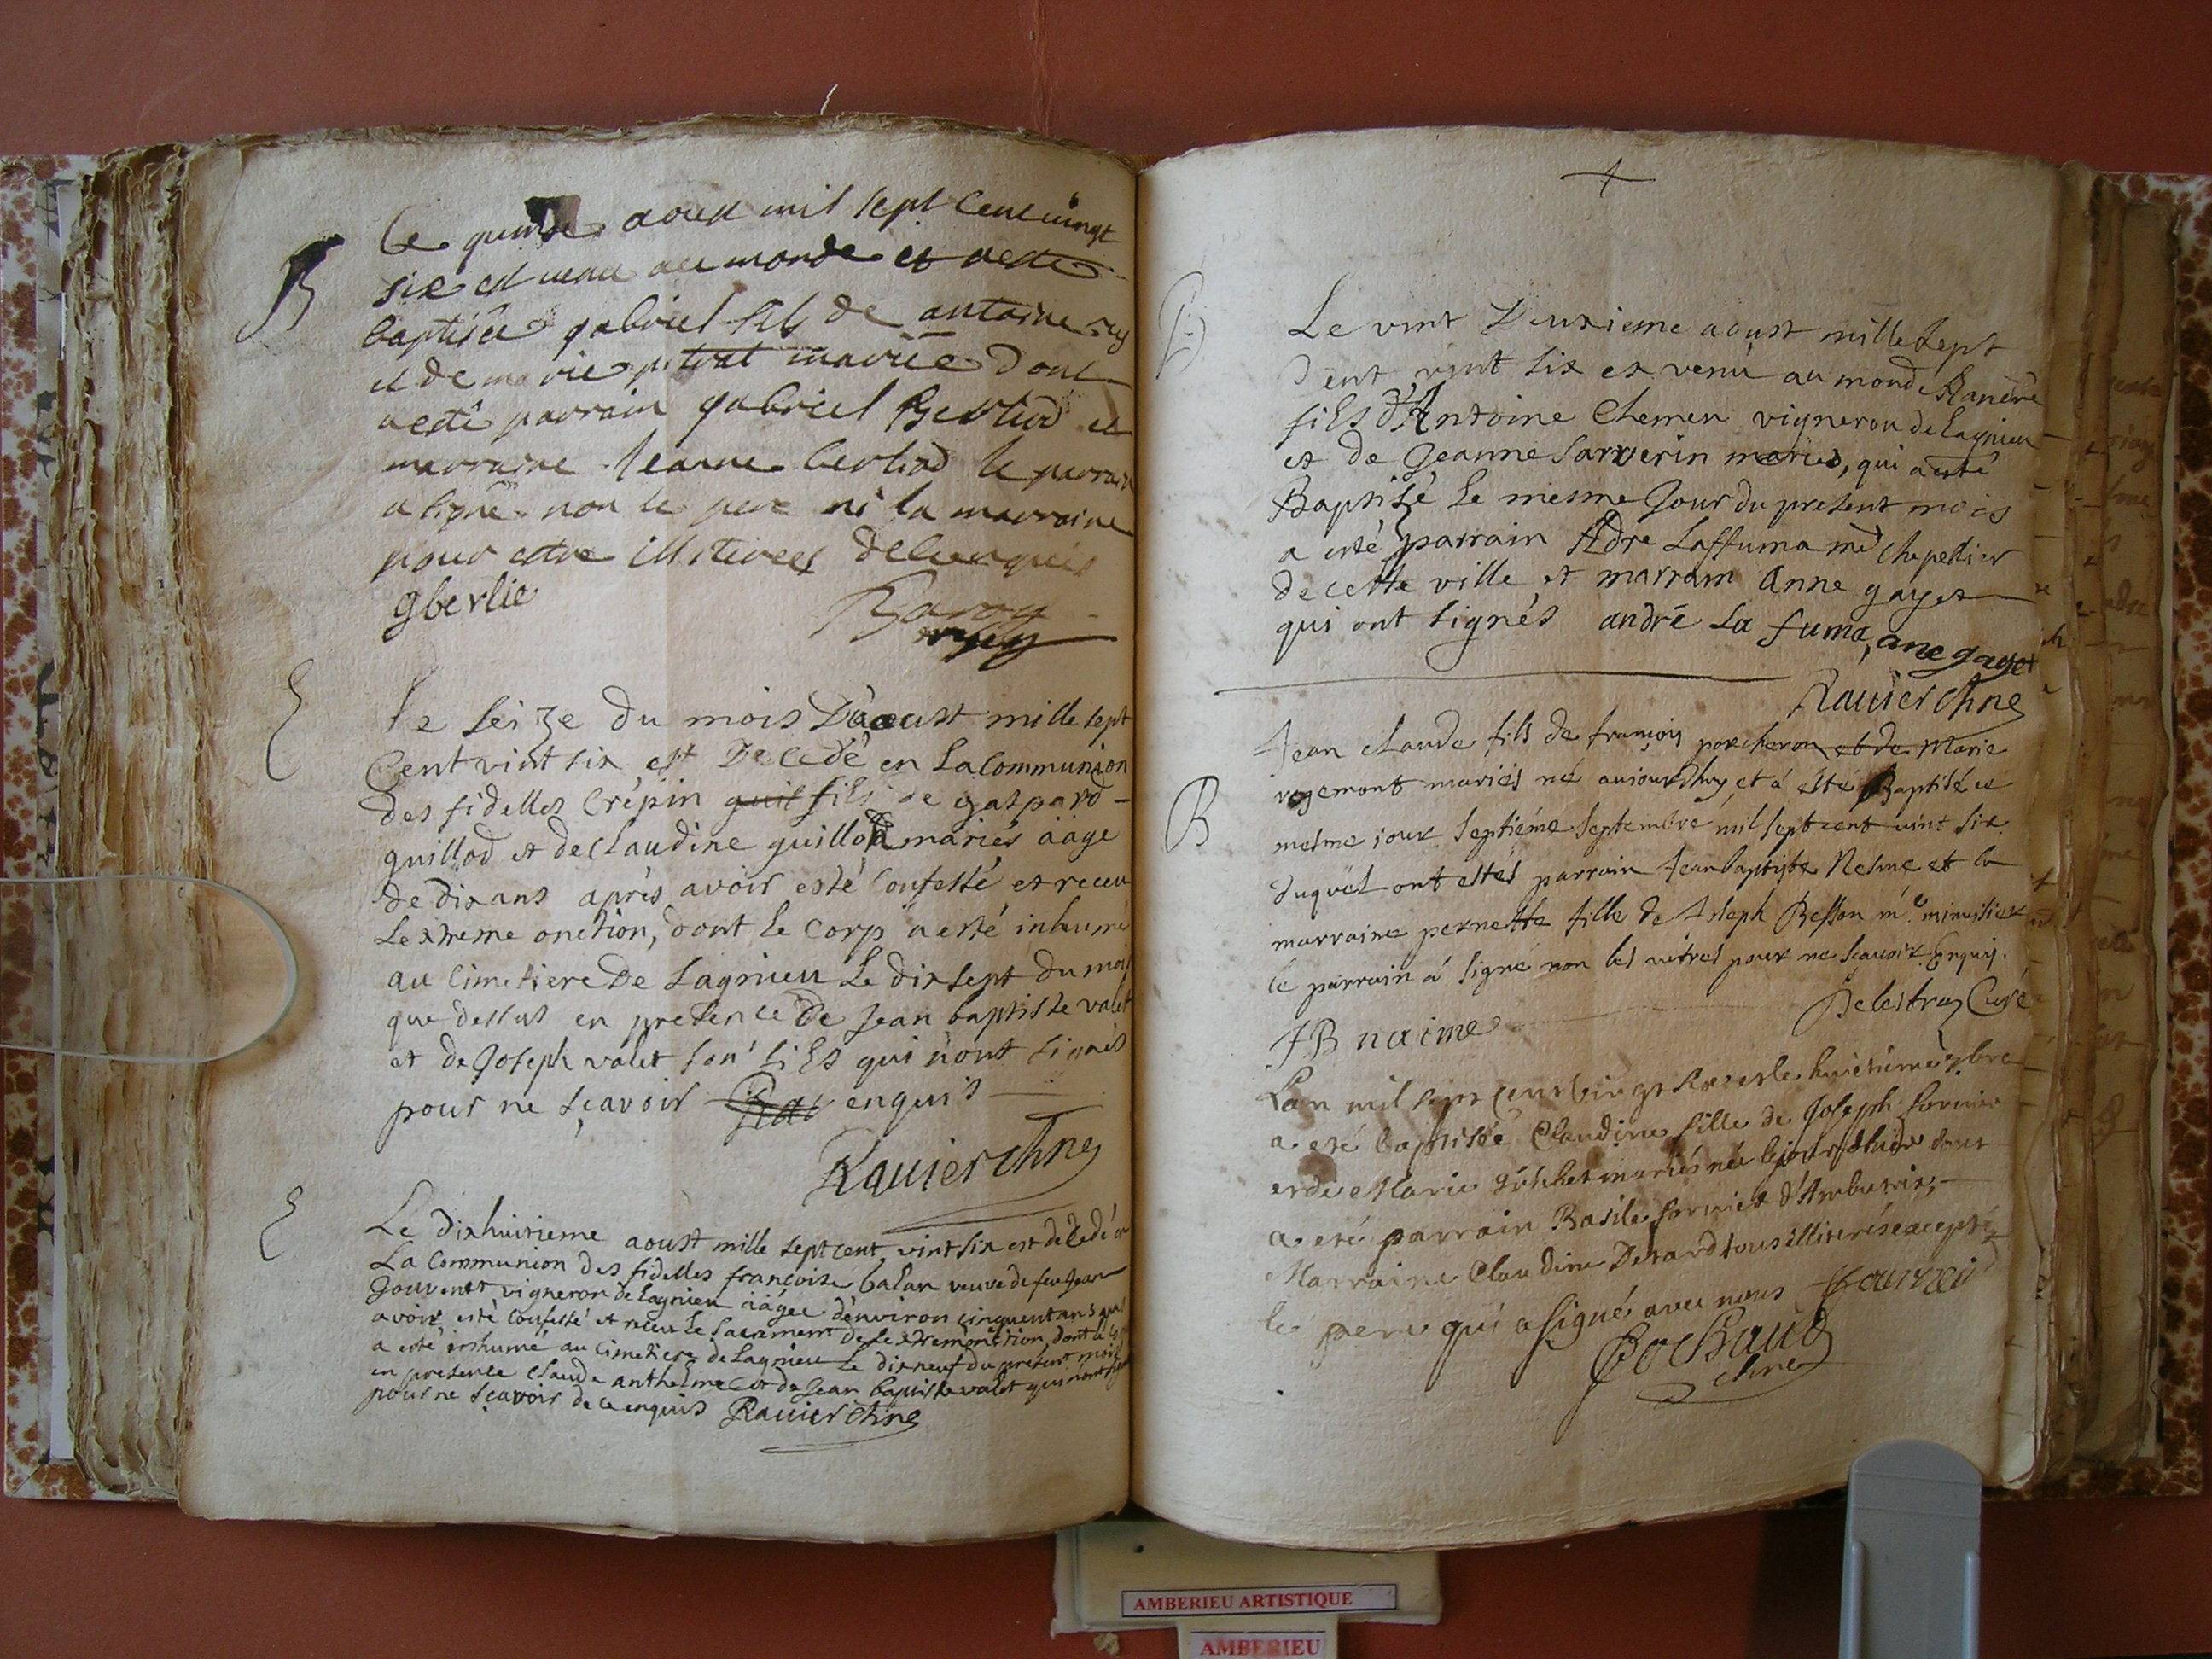 B
Le quinze aoust mil sept cent vingt
six est venu au monde et a esté
baptisée gabriel fils de antoine rey
et de marie mariée dont
a esté parrain gabriel Berliod et
marraine Jeanne berliod le parrain
a signé non le pere ni la marraine
pour estre illiterees de ce enquis
gberlie
E
Le seize du mois D'aoust mille sept
Cent vint six est Decedé en La Communion
des fidelles Crépin fils de gaspard
guillod et de Claudine guillod mariés aagé
de dix ans aprés avoir esté Confessé et receu
Lextreme onction, dont le Corp a esté inhumé
au Cimetiere De Lagnieu Le dix sept du mois
que dessus en presence De Jean baptiste valet
et de Joseph valet son fils qui n'ont signés
pour ne sçavoir enquis
Ravier Vicaire
E
Le dixhuitieme aoust mille sept cent vint six est decedé en
La Communion des fidelles françoise balan veuve de feu Jean
Jouvent vigneron de Lagnieu aagée d'environ cinquent ans
avoir esté Confessé et receu le sacrement de lextremonction, dont le
a esté inhumé au Cimetiere de Lagnieu Le dix neuf du present mois
en presence Claude anthelme et de Jean baptiste valet qui n'ont
pour ne sçavoir de ce enquis Ravier
B
Le vint Deuxieme aoust mille sept
Cent vint six es venu au monde
fils d'Antoine Chemen vigneron de Lagnieu
et de Jeanne Sarverin mariés, qui a esté
Baptisé le mesme Jour du present mois
a esté parrain Adre Laffuma md Chapellier
de cette ville et marrain Anne gayet
qui ont signés andré La fuma, ane gayet
Ravier
B
Jean claude fils de françois porcheron et de Marie
rogemont mariés né aujourdhuy et a esté Baptisé ce
mesme jour septiéme septembre mil sept cent vint six
duquel ont estés parrain Jean baptiste Nesme et la
marraine pernette fille de Joseph Besson me minusier
le parrain a signé non les autres pour ne scavoir Enquis.
JB naime
Belestras Curé
Lan mil sept cent vingt six et le huitiéme 7bre
a eté baptisée Claudine fille de Joseph fornier
et de Marie mariés née le jour d'hier dont
a eté parrain Basile fornier d'Ambutrix,
Marraine Claudine Derard tous illiterés excepté
le pere qui a signé avec nous fournier
Bochard
AMBERIEU ARTISTIQUE
AMBERIEU